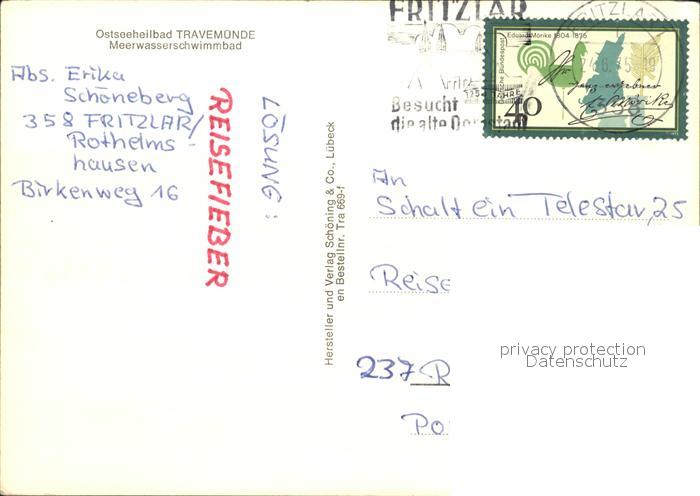 Ostseeheilbad TRAVEMÜNDE
Meerwasserschwimmbad
Abs. Erika
Schöneberg
358 FRITZLAR/
Rothelms-
hausen
Birkenweg 16
REISEFIEBER
LÖSUNG:
Hersteller und Verlag Schöning & Co., Lübeck
en Bestellnr. Tra 669-f
FRITZLAR
Besucht
die alte Domstadt
Eduard Mörike 1804-1875
Deutsche Bundespost
40
FRITZLAR
An
Schalt ein Telestar, 25
Reise
237 R
Po
privacy protection
Datenschutz